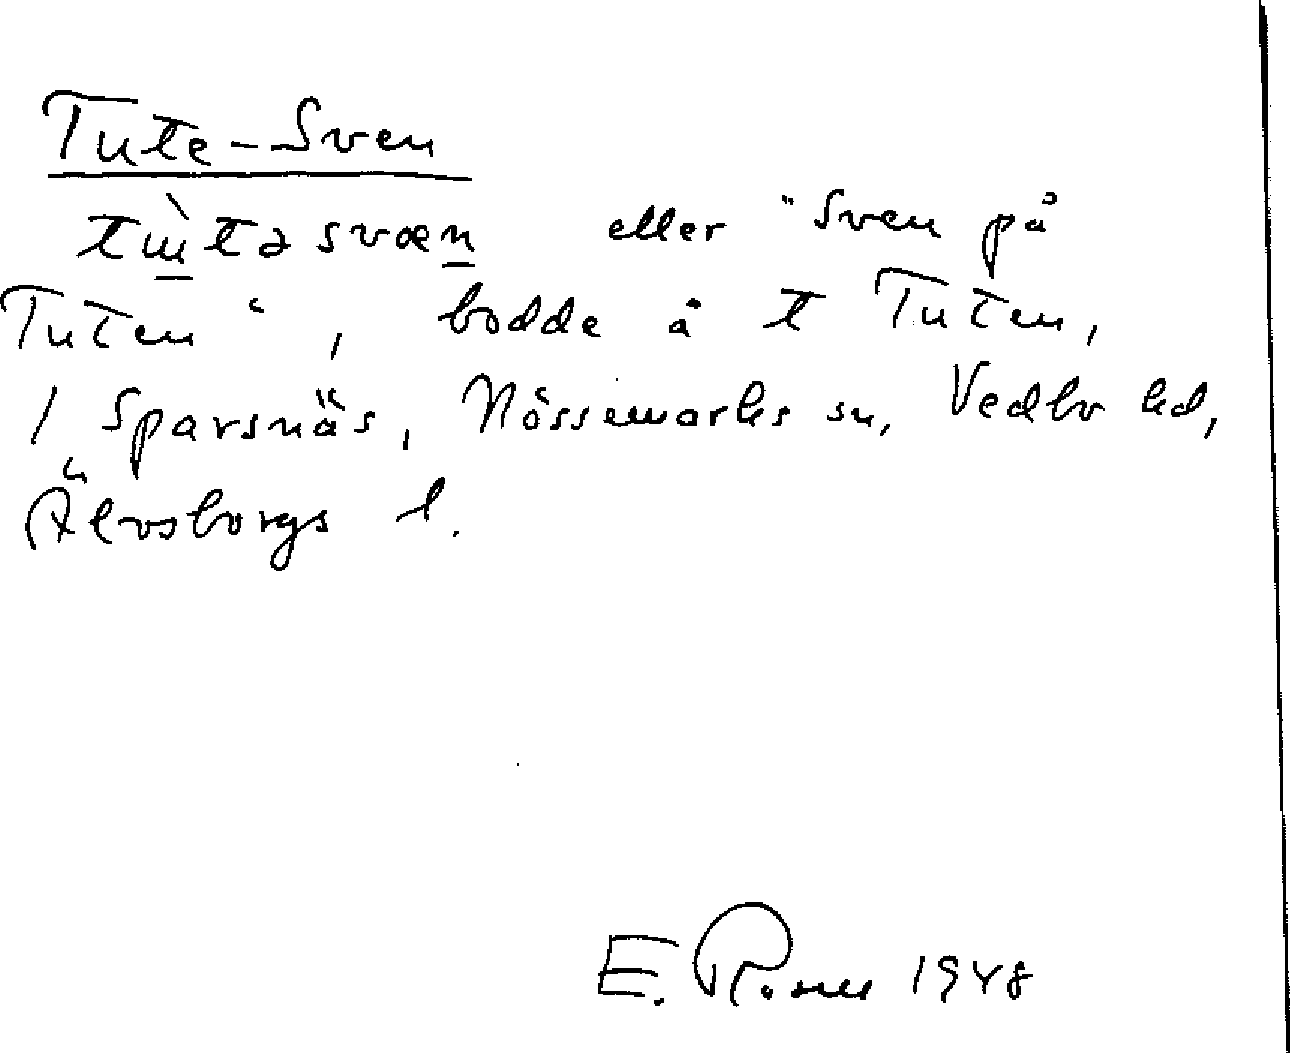 Tute-Sven
tɯ̀tə svæn eller "Sven på
Tuten", bodde å t Tuten,
/ Sparsnäs, Nössemarks sn, Vedbo hd,
Älvsborgs l.
E. 1948